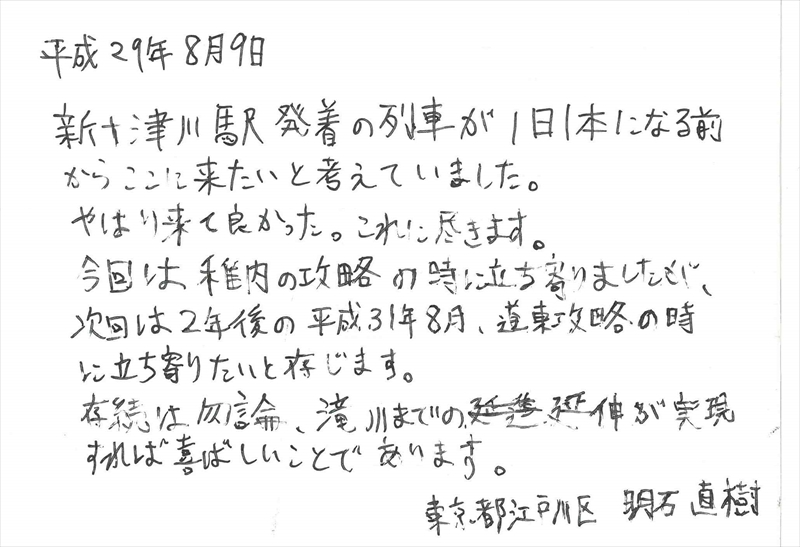 平成29年8月9日
新十津川駅発着の列車が1日1本になる前
からここに来たいと考えていました。
やはり来て良かった。これに尽きます。
今回は稚内の攻略の時に立ち寄りましたが、
次回は2年後の平成31年8月、道東攻略の時
に立ち寄りたいと存じます。
存続は勿論、滝川までの延伸が実現
すれば喜ばしいことであります。
東京都江戸川区 明石直樹